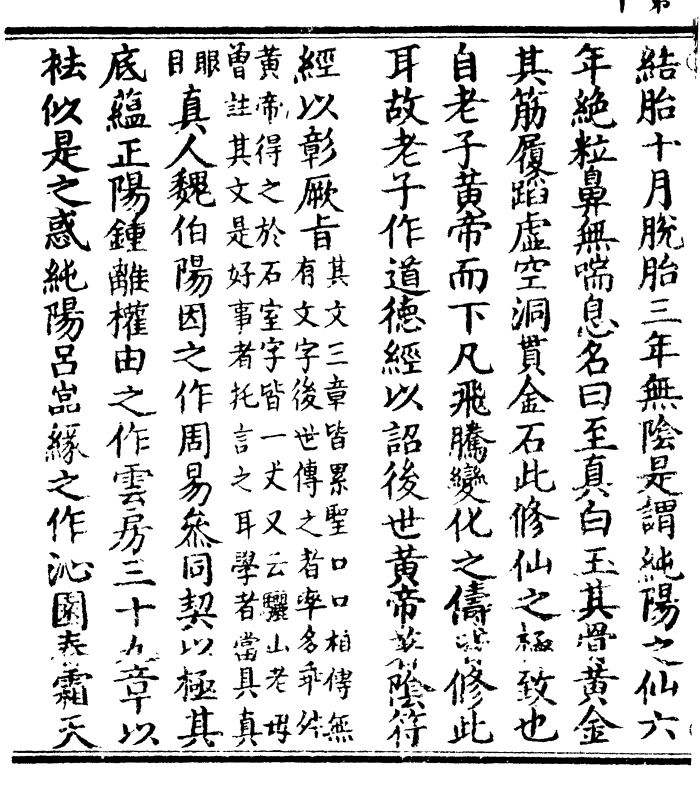 結胎十月脫胎三年無陰是謂純陽之仙六
年絕粒鼻無喘息名曰至真白玉其骨黃金
其筋履蹈虛空洞貫金石此修仙之極致也
自老子黃帝而下凡飛騰變化之儔皆修此
耳故老子作道德經以詔後世黃帝著陰符
經以彰厥旨其文三章皆累聖口口相傳無
有文字後世傳之者率多乖舛
黃帝得之於石室字皆一丈又云驪山老母
曾註其文是好事者托言之耳學者當具真
眼目真人魏伯陽因之作周易叅同契以極其
底蘊正陽鍾離權由之作雲房三十九章以
祛似是之惑純陽呂嵓緣之作沁園春霜天